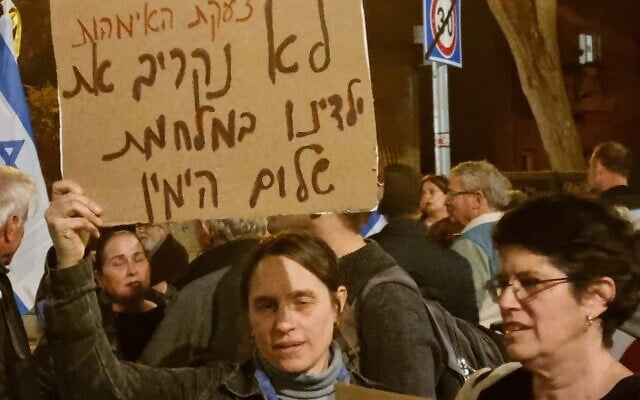 זעקת האימהות
לא נקריב את
ילדינו במלחמת
שלום הימין
30